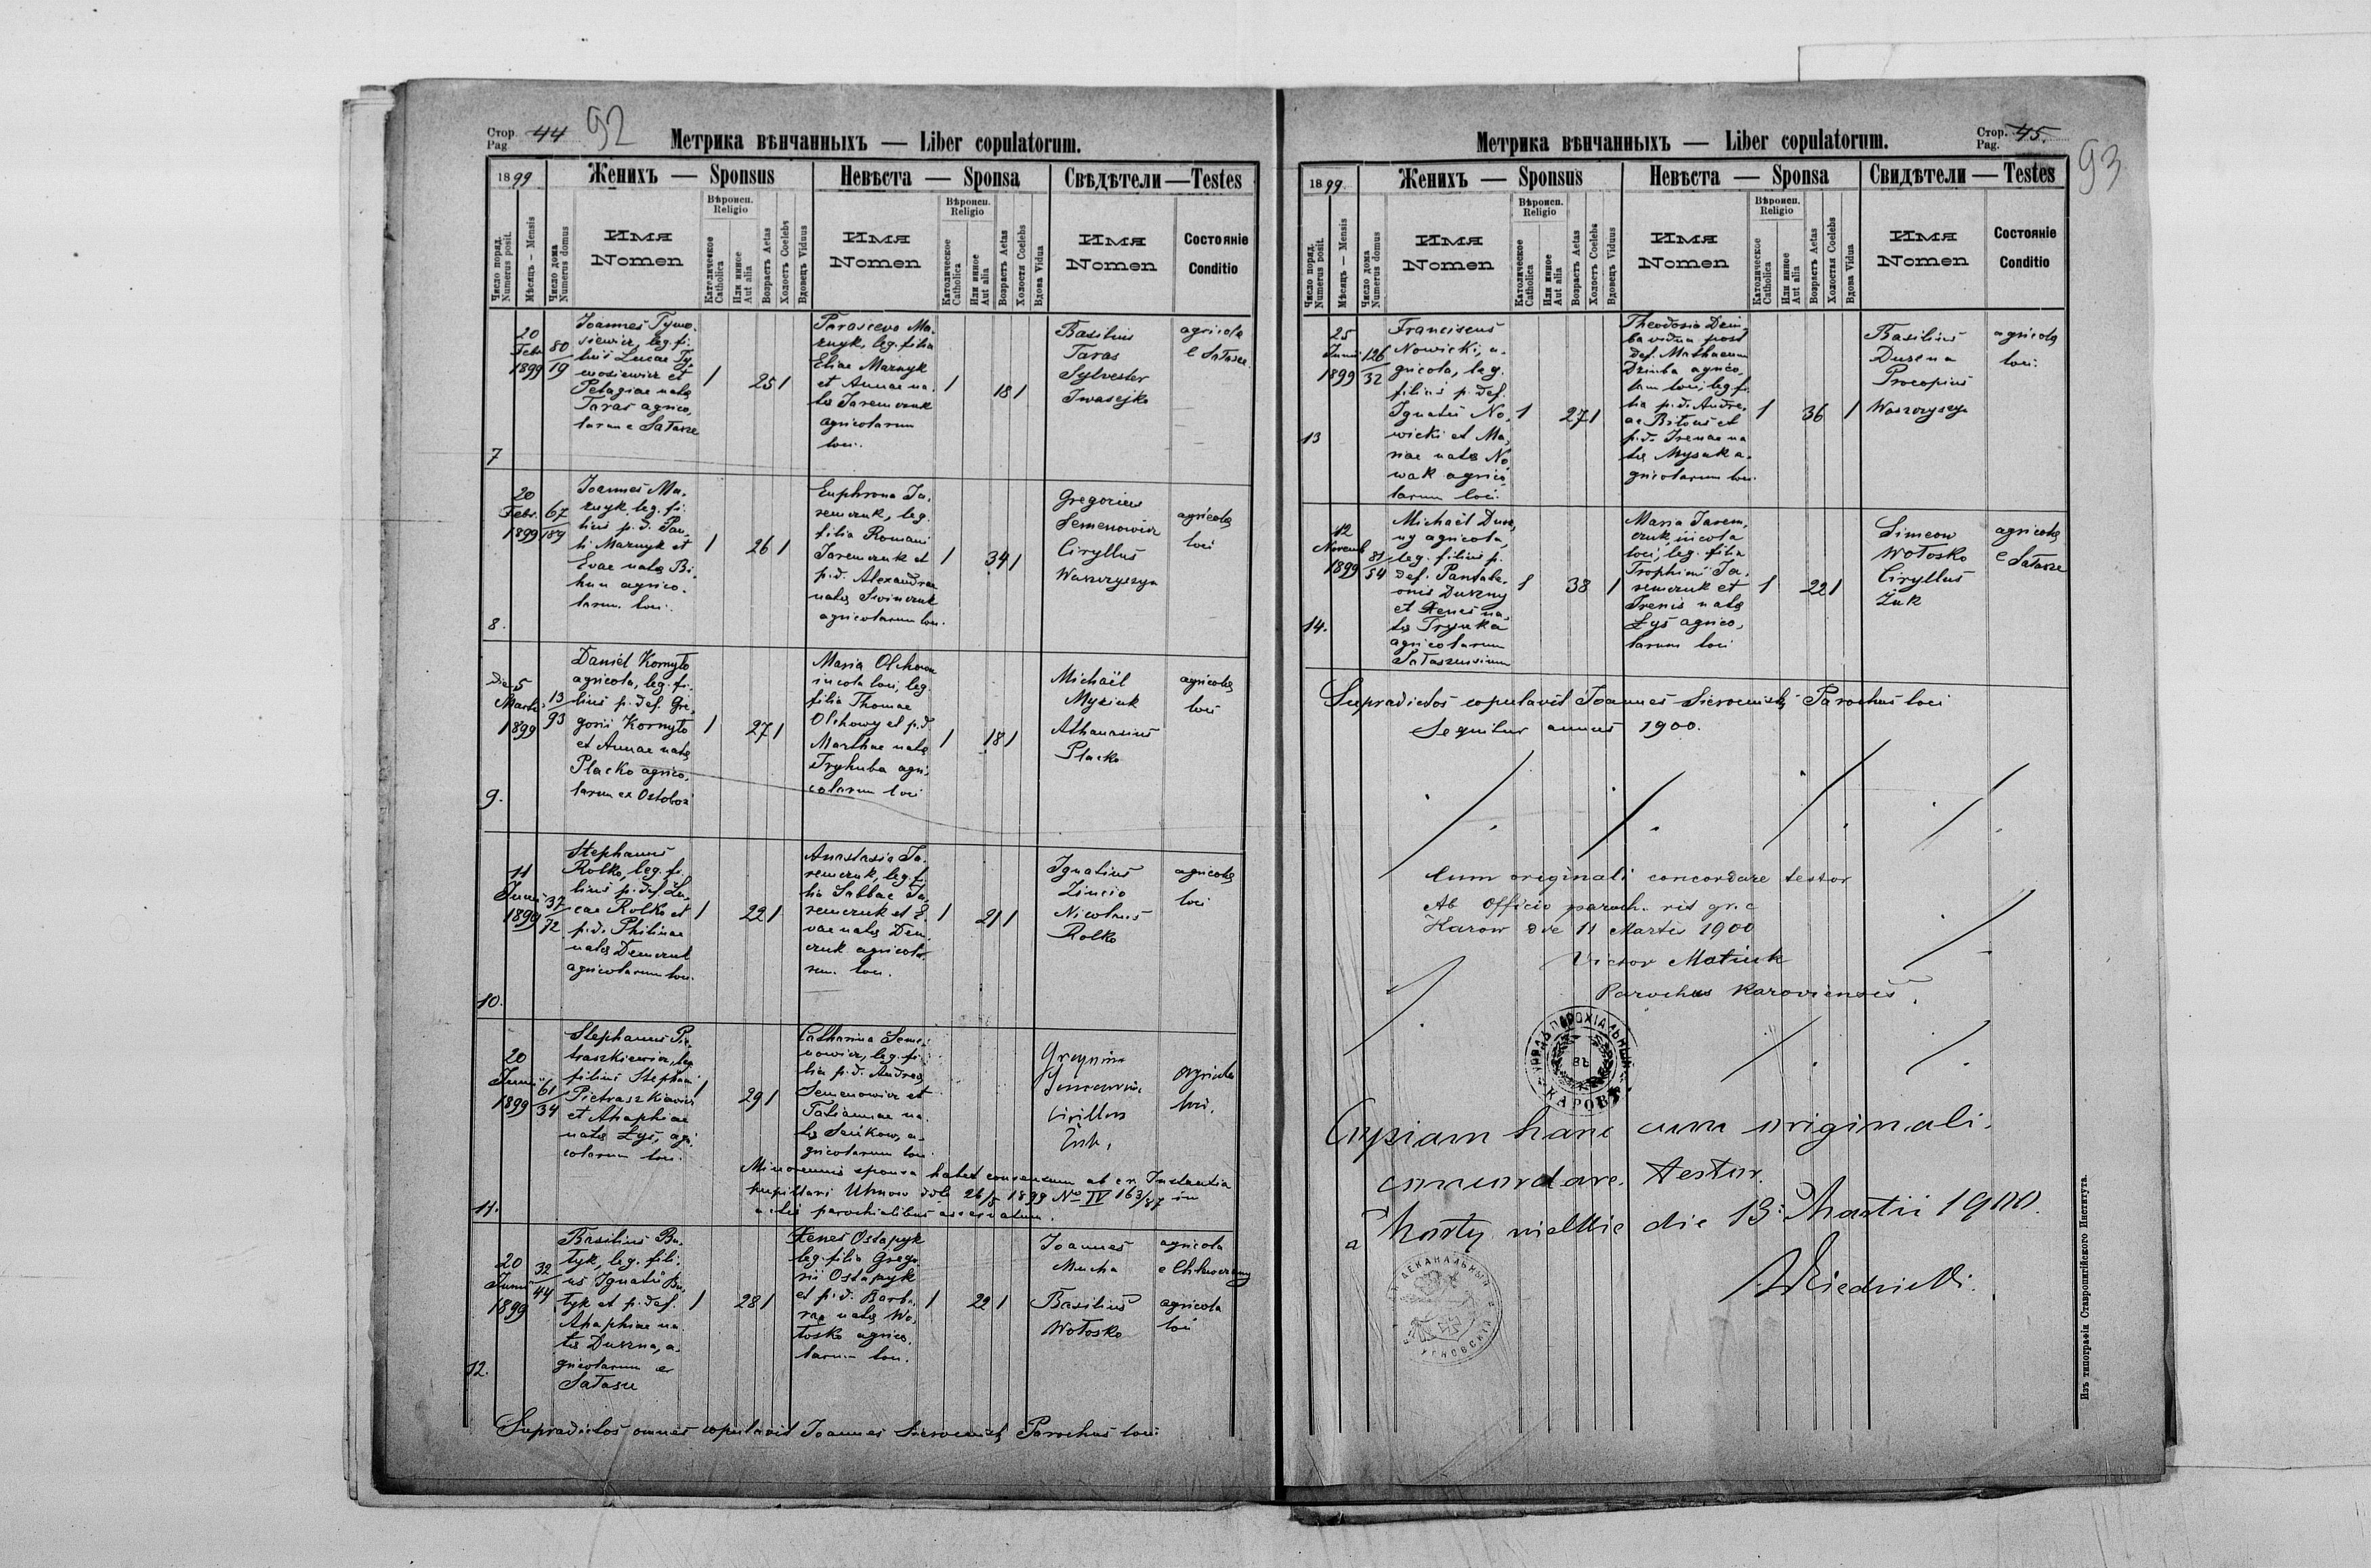 Стор. Pag 44
92
Метрика вѣнчанныхъ — Liber copulatorum.
1899
Женихъ — Sponsus
Невѣста — Sponsa
Свѣдѣтели — Testes
Число поряд. Numerus posit.
Мѣсяцъ — Mensis
Число дома Numerus domus
Имя Nomen
Вѣроисп. Religio
Католическое Catholica
Или инное Aut alia
Возрастъ Aetas
Холостъ Coelebs
Вдовецъ Viduus
Имя Nomen
Вѣроисп. Religio
Католическое Catholica
Или инное Aut alia
Возрастъ Aetas
Холостая Coelebs
Вдова Vidua
Имя Nomen
Состояніе Conditio
7
20
Febr
1899
80
19
Joannes Tymo-
siewicz, leg. fi-
lius Lucae Ty-
mosiewicz et
Pelagiae nata
Taras agrico-
larum e Sałasze
1 25 1
Parasceva Ma-
znyk, leg. filia
Eliae Maznyk
et Annae na-
ta Jaremczuk
agricolarum
loci.
1 18 1
Basilius
Taras
Sylvester
Iwasejko
agricola
e Sałasze
8.
20
Febr.
1899
67
189
Joannes Ma-
znyk, leg. fi-
lius p. d. Pau-
li Maznyk et
Evae nata Bi-
hun agrico-
larum loci.
1 26 1
Euphrona Ja-
remczuk, leg.
filia Romani
Jaremczuk et
p.d. Alexandrae
nata Swinczuk
agricolarum loci.
1 34 1
Gregorius
Semenowicz
Ciryllus
Waszczyszyn
agricola
loci
9.
Die 5
Martii
1899
13
93
Daniel Kornyło
agricola, leg. fi-
lius p. def. Gre-
gorii Kornyło
et Annae nata
Placko agrico-
larum ex Ostobož
1 27 1
Maria Olchowa
incola loci, leg.
filia Thomae
Olchowy et p.d.
Marthae nata
Tryhuba agri-
colarum loci
1 18 1
Michaël
Myziuk
Athanasius
Placko
agricola
loci
10.
11
Junii
1899
37
72
Stephanus
Rolko, leg. fi-
lius p. def. Lu-
cae Rolko et
p.d. Philinae
nata Demczuk
agricolarum loci.
1 22 1
Anastasia Ja-
remczuk, leg. fi-
lia Sabbae Ja-
remczuk et E-
vae nata Dem-
czuk agricola-
rum loci.
1 21 1
Ignatius
Zincio
Nicolaus
Rolko
agricola
loci
11.
20
Junii
1899
61
34
Stephanus Pie-
traszkiewicz, leg
filius Stephani
Pietraszkiewicz
et Ahaphiae
nata Łyś, agri-
colarum loci.
1 29 1
Catharina Seme-
nowicz, leg. fi-
lia p. d. Andreae
Semenowicz et
Tatiannae na-
ta Saukow, a-
gricolarum loci
Gregorius
Semenowicz
Cirillus
Żuk,
agricola
loci.
Minorennis sponsa habet consensum ab c. r. Instantia
pupillari Uhnow ddto 26/5 1899 No IV 163/87 in
actis parochialibus asservatum.
12.
20
Junii
1899
32
44
Basilius Bu-
tyk, leg. fili-
us Ignatii Bu-
tyk et p. def.
Ahaphiae na-
ta Duszna, a-
gricolarum e
Sałasze
1 28 1
Xenes Ostapyk
leg. filia Grego-
rii Ostapyk
et p. d. Barba-
rae nata Wo-
łosko agrico-
larum loci.
1 22 1
Joannes
Mucha
Basilius
Wołosko
agricola
agricola
loci
Supradictos omnes copulavit Joannes Sieroczuski Parochus loci
Метрика вѣнчанныхъ — Liber copulatorum.
Стор. Pag. 45.
93
1899
Женихъ — Sponsus
Невѣста — Sponsa
Свидѣтели — Testes
Число поряд. Numerus posit.
Мѣсяцъ — Mensis
Число дома Numerus domus
Имя Nomen
Вѣроисп. Religio
Католическое Catholica
Или инное Aut alia
Возрастъ Aetas
Холостъ Coelebs
Вдовецъ Viduus
Имя Nomen
Вѣроисп. Religio
Католическое Catholica
Или инное Aut alia
Возрастъ Aetas
Холостая Coelebs
Вдова Vidua
Имя Nomen
Состояніе Conditio
13
25
Junii
1899
126
32
Franciscus
Nowicki, a-
gricola, leg.
filius p. def.
Ignatii No-
wicki et Ma-
riae nata No-
wak agrico-
larum loci.
1 27 1
Theodosia Dzin-
ba vidua post
def. Mathaeum
Dzinba agrico-
lam loci, leg. fi-
lia p. d. Andre-
ae Bitous et
p. d. Irenae na
ta Mysak a-
gricolarum loci.
1 36 1
Basilius
Duszna
Procopius
Waszczyszyn
agricola
loci.
14.
12
Novemb
1899
81
54
Michaël Dusz-
ny agricola,
leg. filius p.
def. Pantale-
onis Duszny
et Xenes na-
ta Trynka
agricolarum
Sałaszensium
1 38 1
Maria Jarem-
czuk, incola
loci, leg. filia
Trophimi Ja-
remczuk et
Irenis nata
Łyś agrico-
larum loci
1 22 1
Simeon
Wołosko
Ciryllus
Żuk
agricola
e Sałasze
Supradictos copulavit Joannes Sieroczuski Parochus loci
Sequitur annus 1900.
Cum originali concordare testor
Ab Officio paroch. rit. gr. c
Karow die 11 Martii 1900
Victor Matiuk
Parochus Karoviensis.
УРЯДЪ ПАРОХІАЛЬНЫЙ ВЪ КАРОВѢ
Copiam hanc cum originali
concordare testor.
Mosty wielkie die 13. Martii 1900.
ДЕКАНАЛЬНЫЙ
Изъ типографіи Ставропигійского Института.